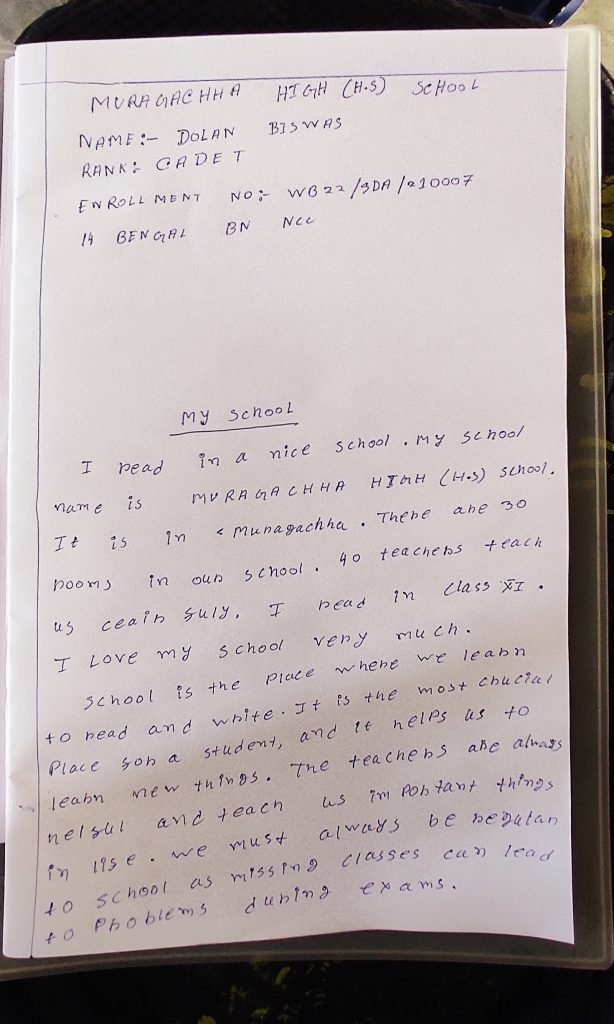 MURAGACHHA HIGH (H.S) SCHOOL
NAME:- DOLAN BISWAS
RANK: CADET
ENROLLMENT NO:- WB22/SDA/210007
14 BENGAL BN NCC
MY SCHOOL
I read in a nice school. My school
name is MURAGACHHA HIGH (H.S) School.
It is in Muragachha. There are 30
rooms in our school. 40 teachers teach
us ceair fuly. I read in class XI.
I Love my school very much.
School is the place where we learn
to read and write. It is the most crucial
Place for a student, and it helps us to
learn new things. The teachers are always
helful and teach us important things
in life. we must always be regular
to school as missing classes can lead
to problems during exams.